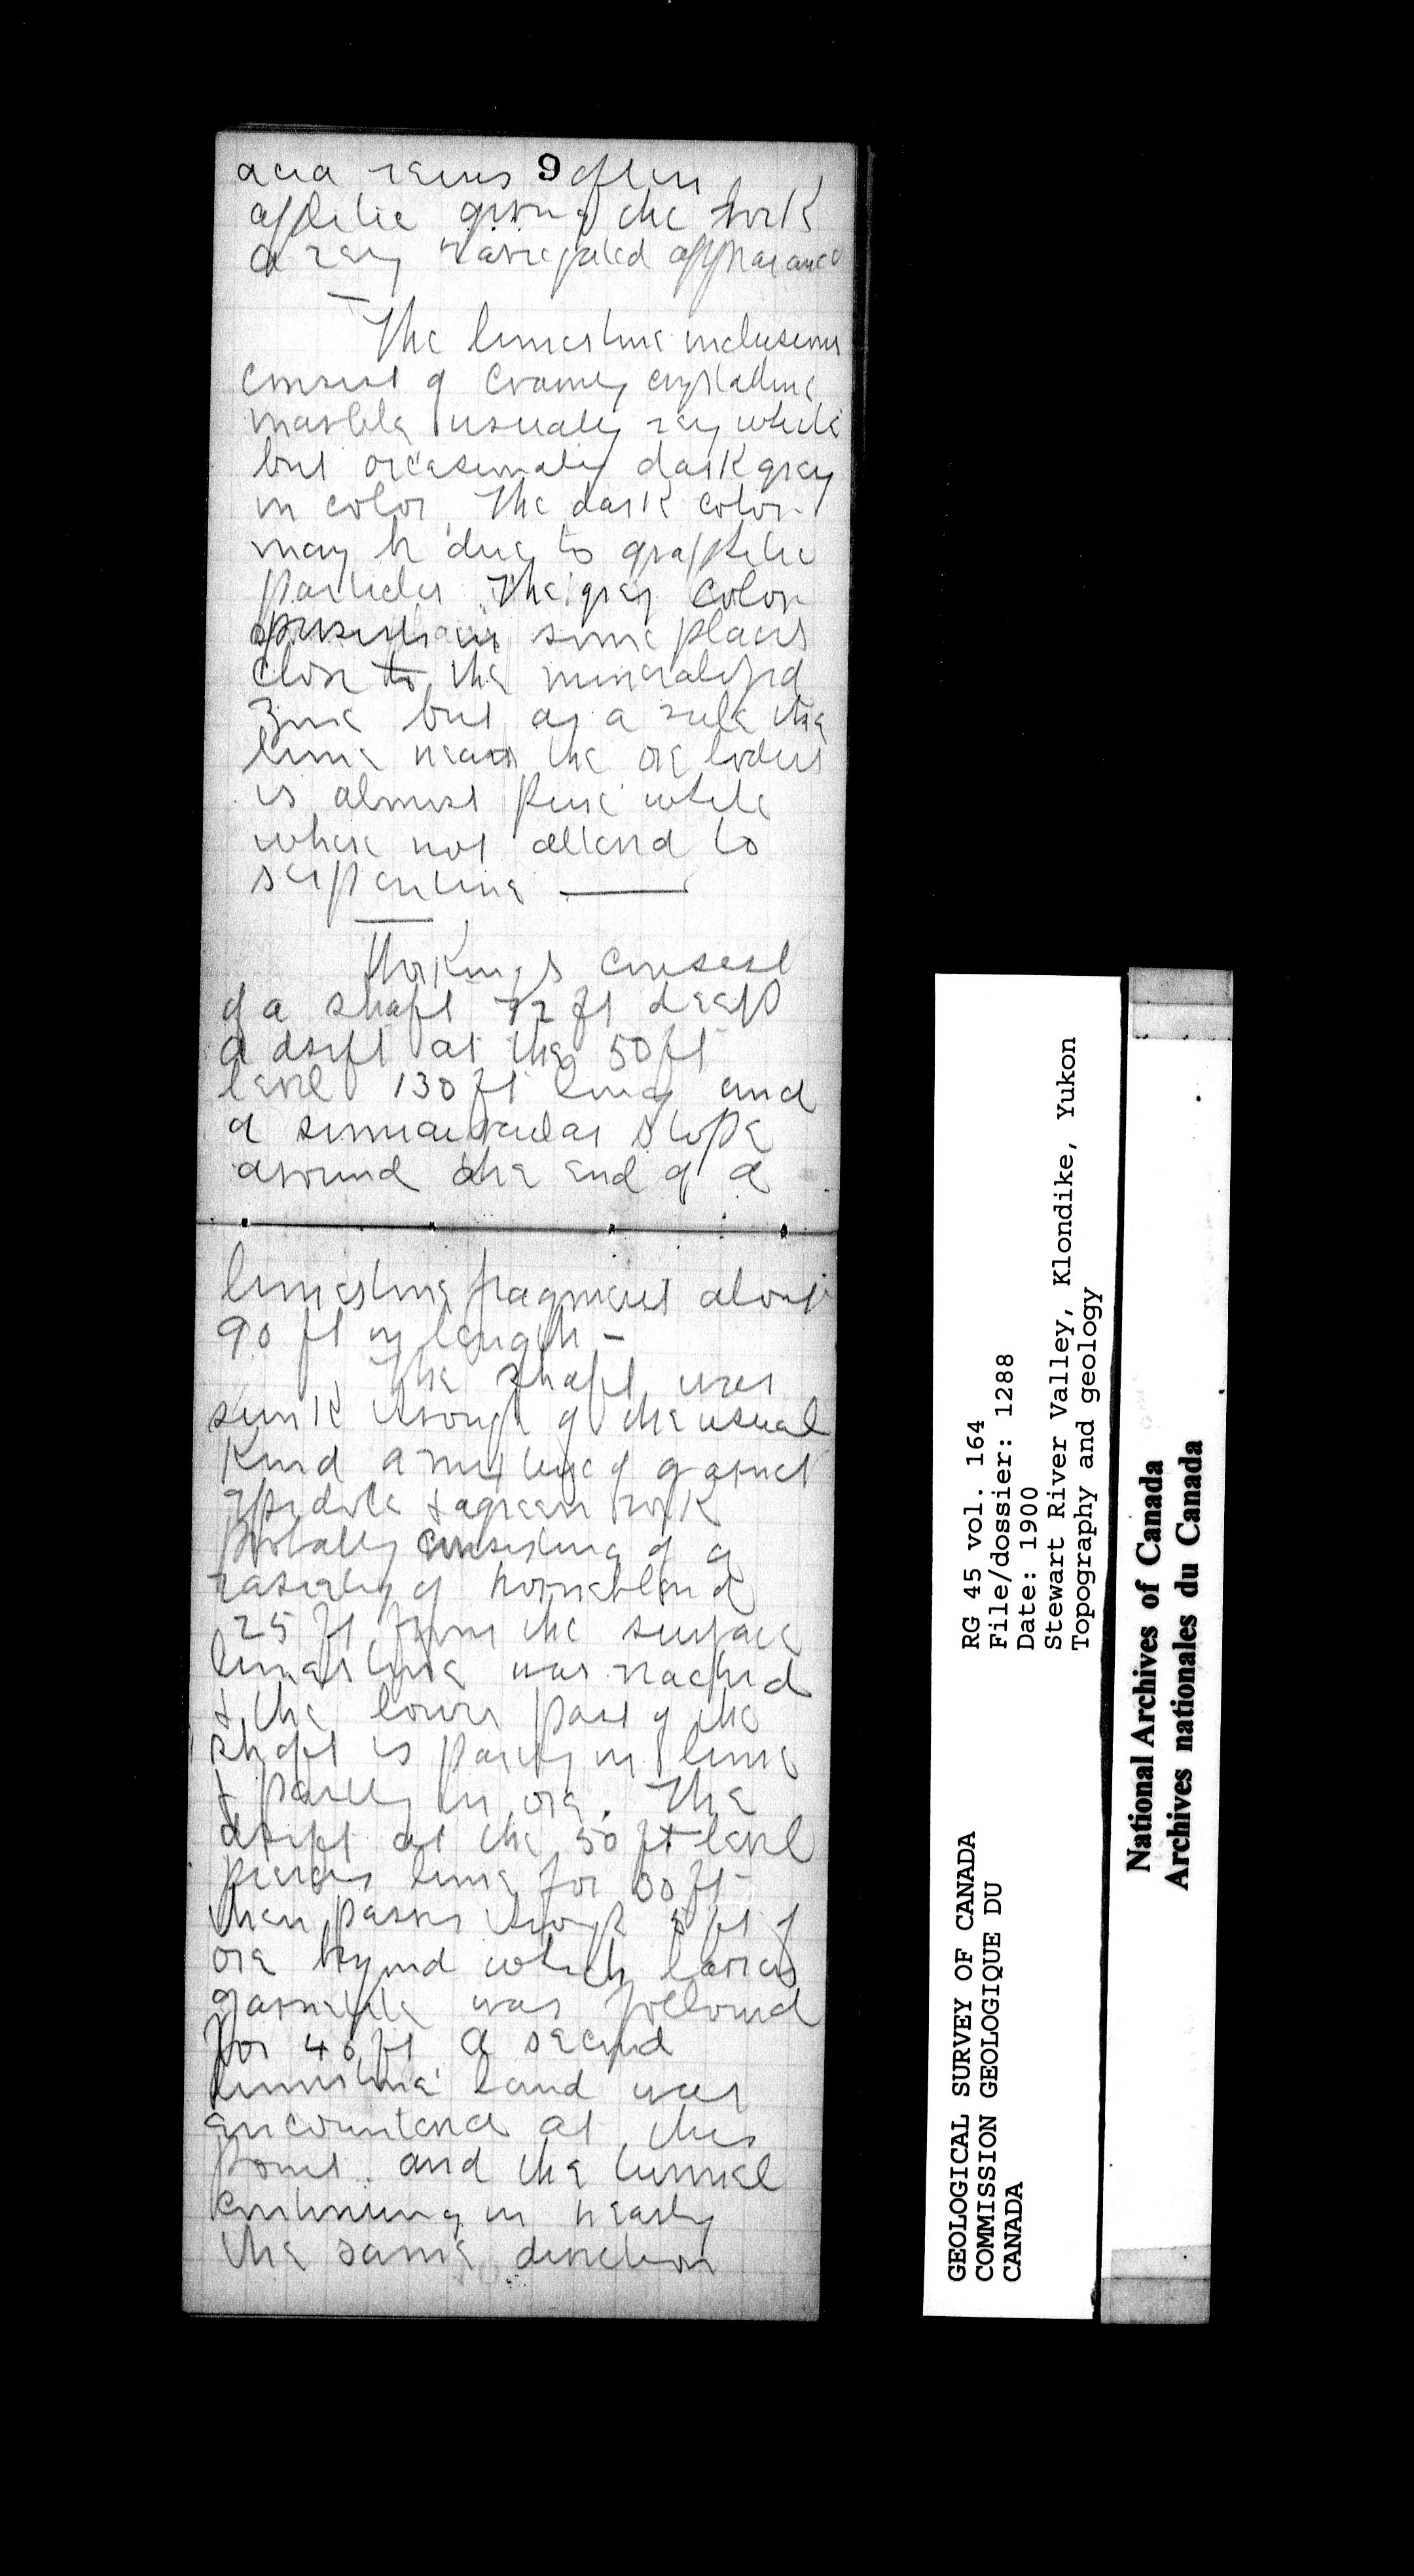 acid veins 9 often
aplitic giving the rock
a very variegated appearance
The limestone inclusions
consist of coarsely crystalline
marble usually very white
but occasionally dark grey
in color. The dark color
may be due to graphitic
particles. The grey color
present in some places
close to the mineralized
zone but as a rule the
lime near the ore bodies
is almost pure white
where not altered to
serpentine
Workings consist
of a shaft 72 ft deep
a drift at the 50 ft
level 130 ft long and
a semicircular stope
around the end of a
limestone fragment about
90 ft in length -
The shaft was
sunk through of the usual
kind a mixture of garnet
epidote & a green rock
probably consisting of a
variety of hornblende
25 ft from the surface
limestone was reached
& the lower part of the
shaft is partly in lime
& partly in ore. The
drift at the 50 ft level
pierces lime for 30 ft
then passes through 5 ft of
ore beyond which barren
garnetite was followed
for 40 ft a second
limestone band was
encountered at this
point and the tunnel
continuing in nearly
the same direction
GEOLOGICAL SURVEY OF CANADA
COMMISSION GEOLOGIQUE DU
CANADA
RG 45 vol. 164
File/dossier: 1288
Date: 1900
Stewart River Valley, Klondike, Yukon
Topography and geology
National Archives of Canada
Archives nationales du Canada